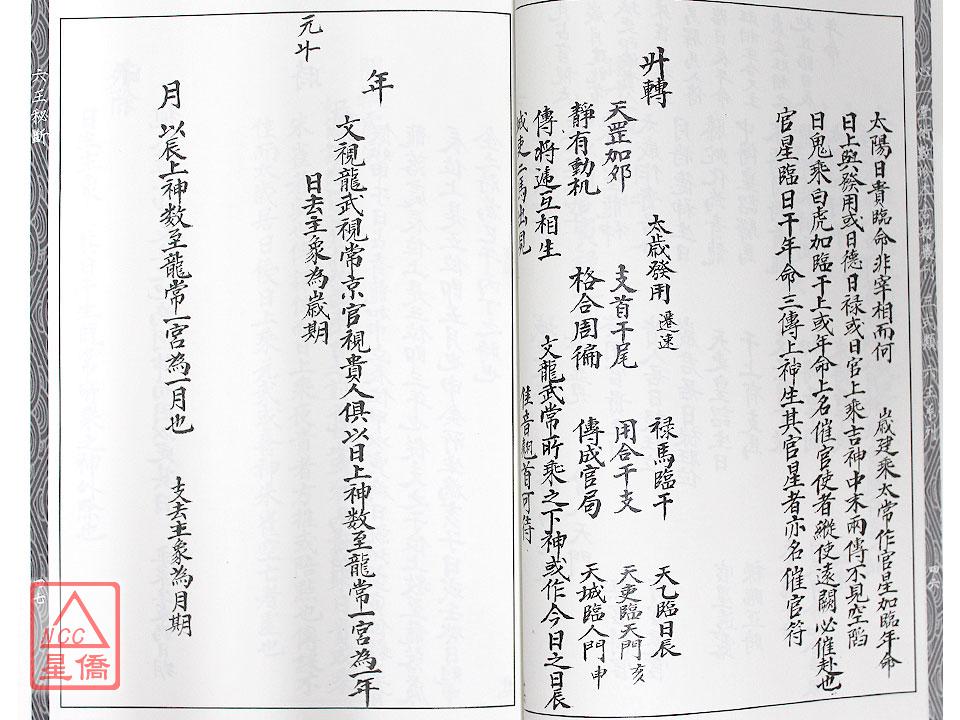 太陽日貴臨命非宰相而何　歲建乘太常作官星加臨年命
日上與發用或日德日祿或日官上乘吉神中末兩傳不見空陷
日鬼乘白虎加臨干上或年命上名催官使者縱使遠闕必催赴也
官星臨日干年命三傳上神生其官星者亦名催官符
升轉
太歲發用　遷速　祿馬臨干　天乙臨日辰
天罡加卯　支首干尾　用合干支　天吏臨天門亥
靜有動机　格合周徧　傳成官局　天城臨人門申
傳將遞互相生　文龍武常所乘之下神或作今日之日辰
年
文視龍武視常京官視貴人俱以日上神数至龍常一宮為一年
日去主象為歲期
月　以辰上神数至龍常一宮為一月也　支去主象為月期
六壬秘斷
NCC
星僑